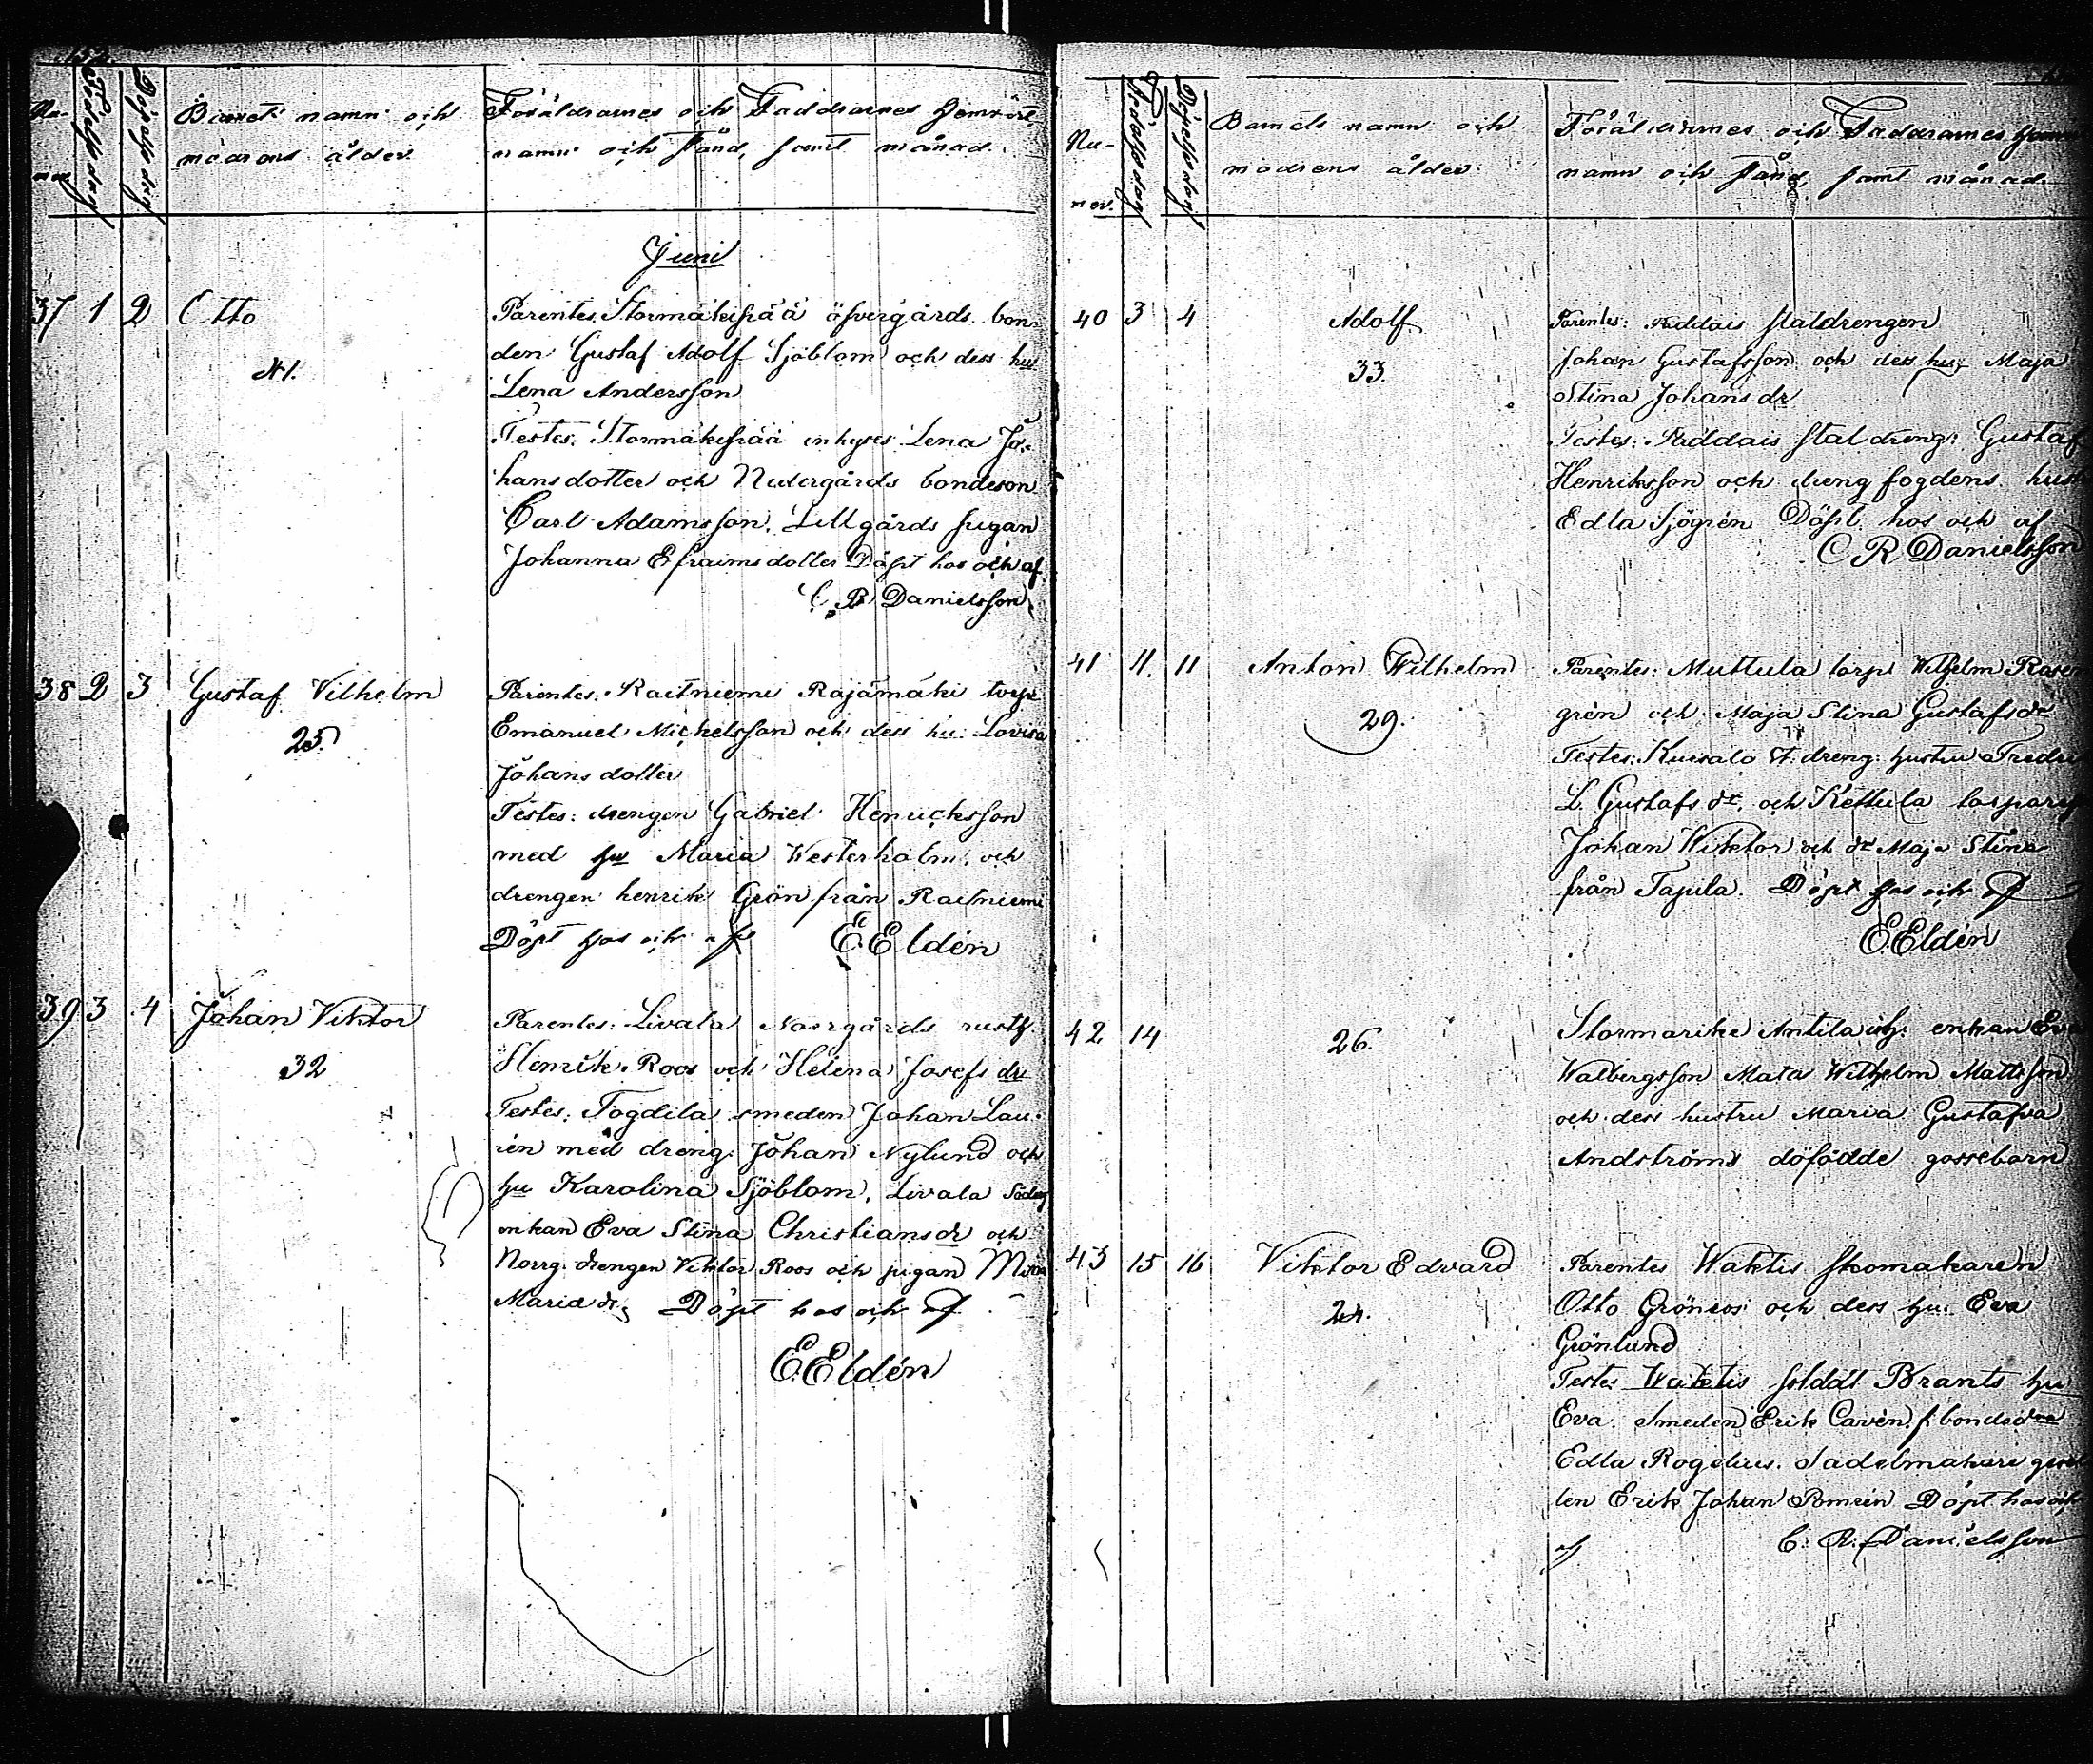 Nu-
mer
Födelsedag
Döpelsedag
Barnets namn och
modrens ålder
Föräldrarnes och Faddrarnes Hemvist,
namn och stånd, samt månad.
Juni
37 1 2 Otto
41.
Parentes. Stormäkispää öfvergårds bon-
den Gustaf Adolf Sjöblom och dess hu
Lena Andersson
Testes: Stormäkispää inhyses Lena Jo-
hansdotter och Nedergårds bondeson
Carl Adamsson. Lillgårds pigan
Johanna Efraimsdotter Döpt hos och af
C R Danielsson
38 2 3 Gustaf Vilhelm
25.
Parentes: Raitniemi Rajämäki torp
Emanuel Michelsson och dess hu: Lovisa
Johans dotter
Testes: drengen Gabriel Henricksson
med hu Maria Westerholm, och
drengen henrik Grön från Raitniemi
Döpt hos och af E. Eldén
39 3 4 Johan Viktor
32
Parentes: Livala Norrgårds rusth.
Henrik Roos och Helena Josefs dr
Testes: Fogdila smeden Johan Lau-
rén med dreng. Johan Nylund och
hu Karolina Sjöblom, Livala Söderg
enkan Eva Stina Christians dr och
Norrg. drengen Viktor Roos och pigan
Maria dr, Döpt hos och af
E. Eldén
Nu-
mer.
Födelsedag
Döpelsedag
Barnets namn och
modrens ålder.
Föräldrarnes och Faddrarnes Hem
namn och stånd, samt månad.
40 3 4 Adolf
33.
Parentes: Kiddais staldrengen
Johan Gustafsson och dess hu: Maja
Stina Johans dr
Testes: Kiddais staldreng: Gustaf
Henriksson och dreng fogdens hust
Edla Sjögrén Döpt hos och af
C R Danielsson
41 11. 11 Anton Wilhelm
29.
Parentes: Muttula torp Wilhelm Rosen
grén och Maja Stina Gustafs dr
Testes: Kursala dreng: hustru Fredri
L. Gustafs dr, och Kettula torpare
Johan Wiktor och dr Maja Stina
från Tapila. Döpt hos och af
E. Eldén
42 14
26.
Stormarike Antila enkan Eva
Walbergsson Wilhelm Mattsson
och dess hustru Maria Gustafva
Andströms döfödde gossebarn
43 15 16 Viktor Edvard
24.
Parentes Waktis skomakaren
Otto Grönroos och dess hu: Eva
Grönlund
Testes Waktis soldat Brants hu
Eva. Smeden Erik Cavén,
Edla Rogelius. Sadelmakare gesel
len Erik Johan Bomrén Döpt hos och
af C. R. Danielsson